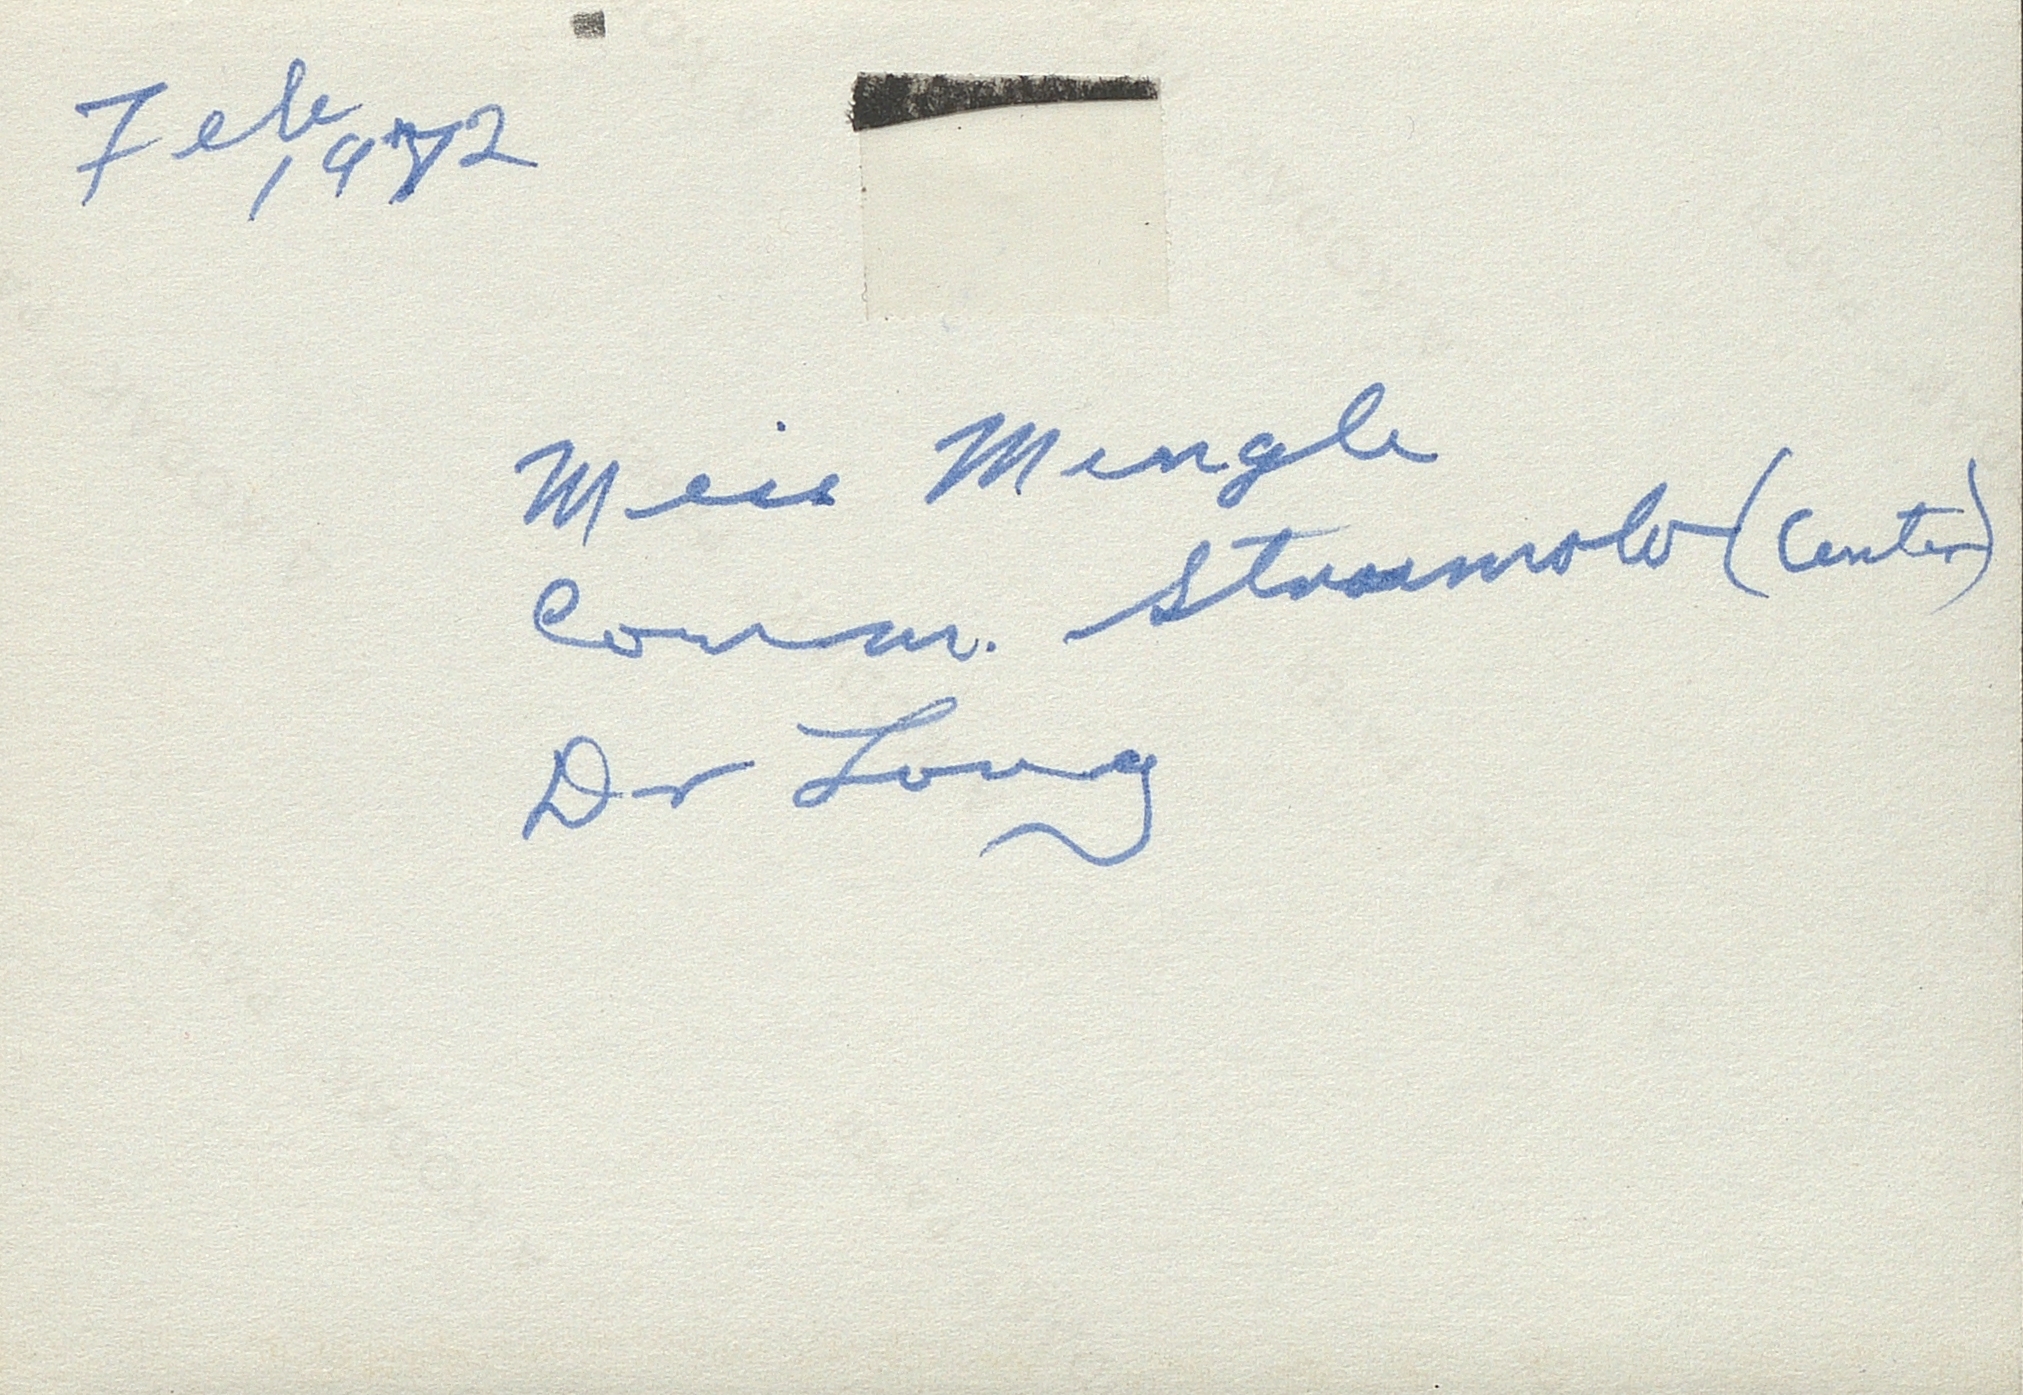 Feb 1972
Miss Mengle
Comm. Strumolo (Center)
Dr Long